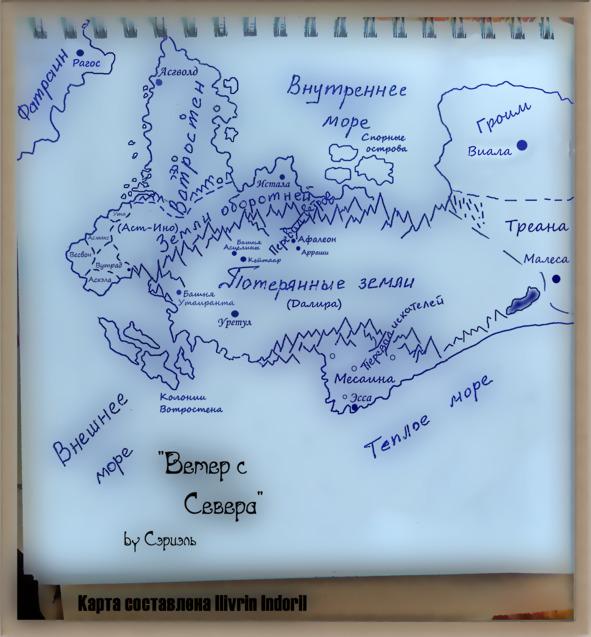 Фатраин
Рагос
Асгволд
Вотростен
Внутреннее
море
Спорные
острова
Гроим
Виала
Истала
Земли оборотней
(Аст-Ино)
Вутрад
Треана
Малеса
Башня
Асцелины
Кейтаар
Афалеон
Арреши
Потерянные земли
(Далира)
Башня
Утамранта
Уретул
Перевал искателей
Месаина
Эсса
Колонии
Вотростена
Внешнее
море
Теплое море
"Ветер с
Севера"
by Сэриэль
Карта составлена Ilivrin Indoril